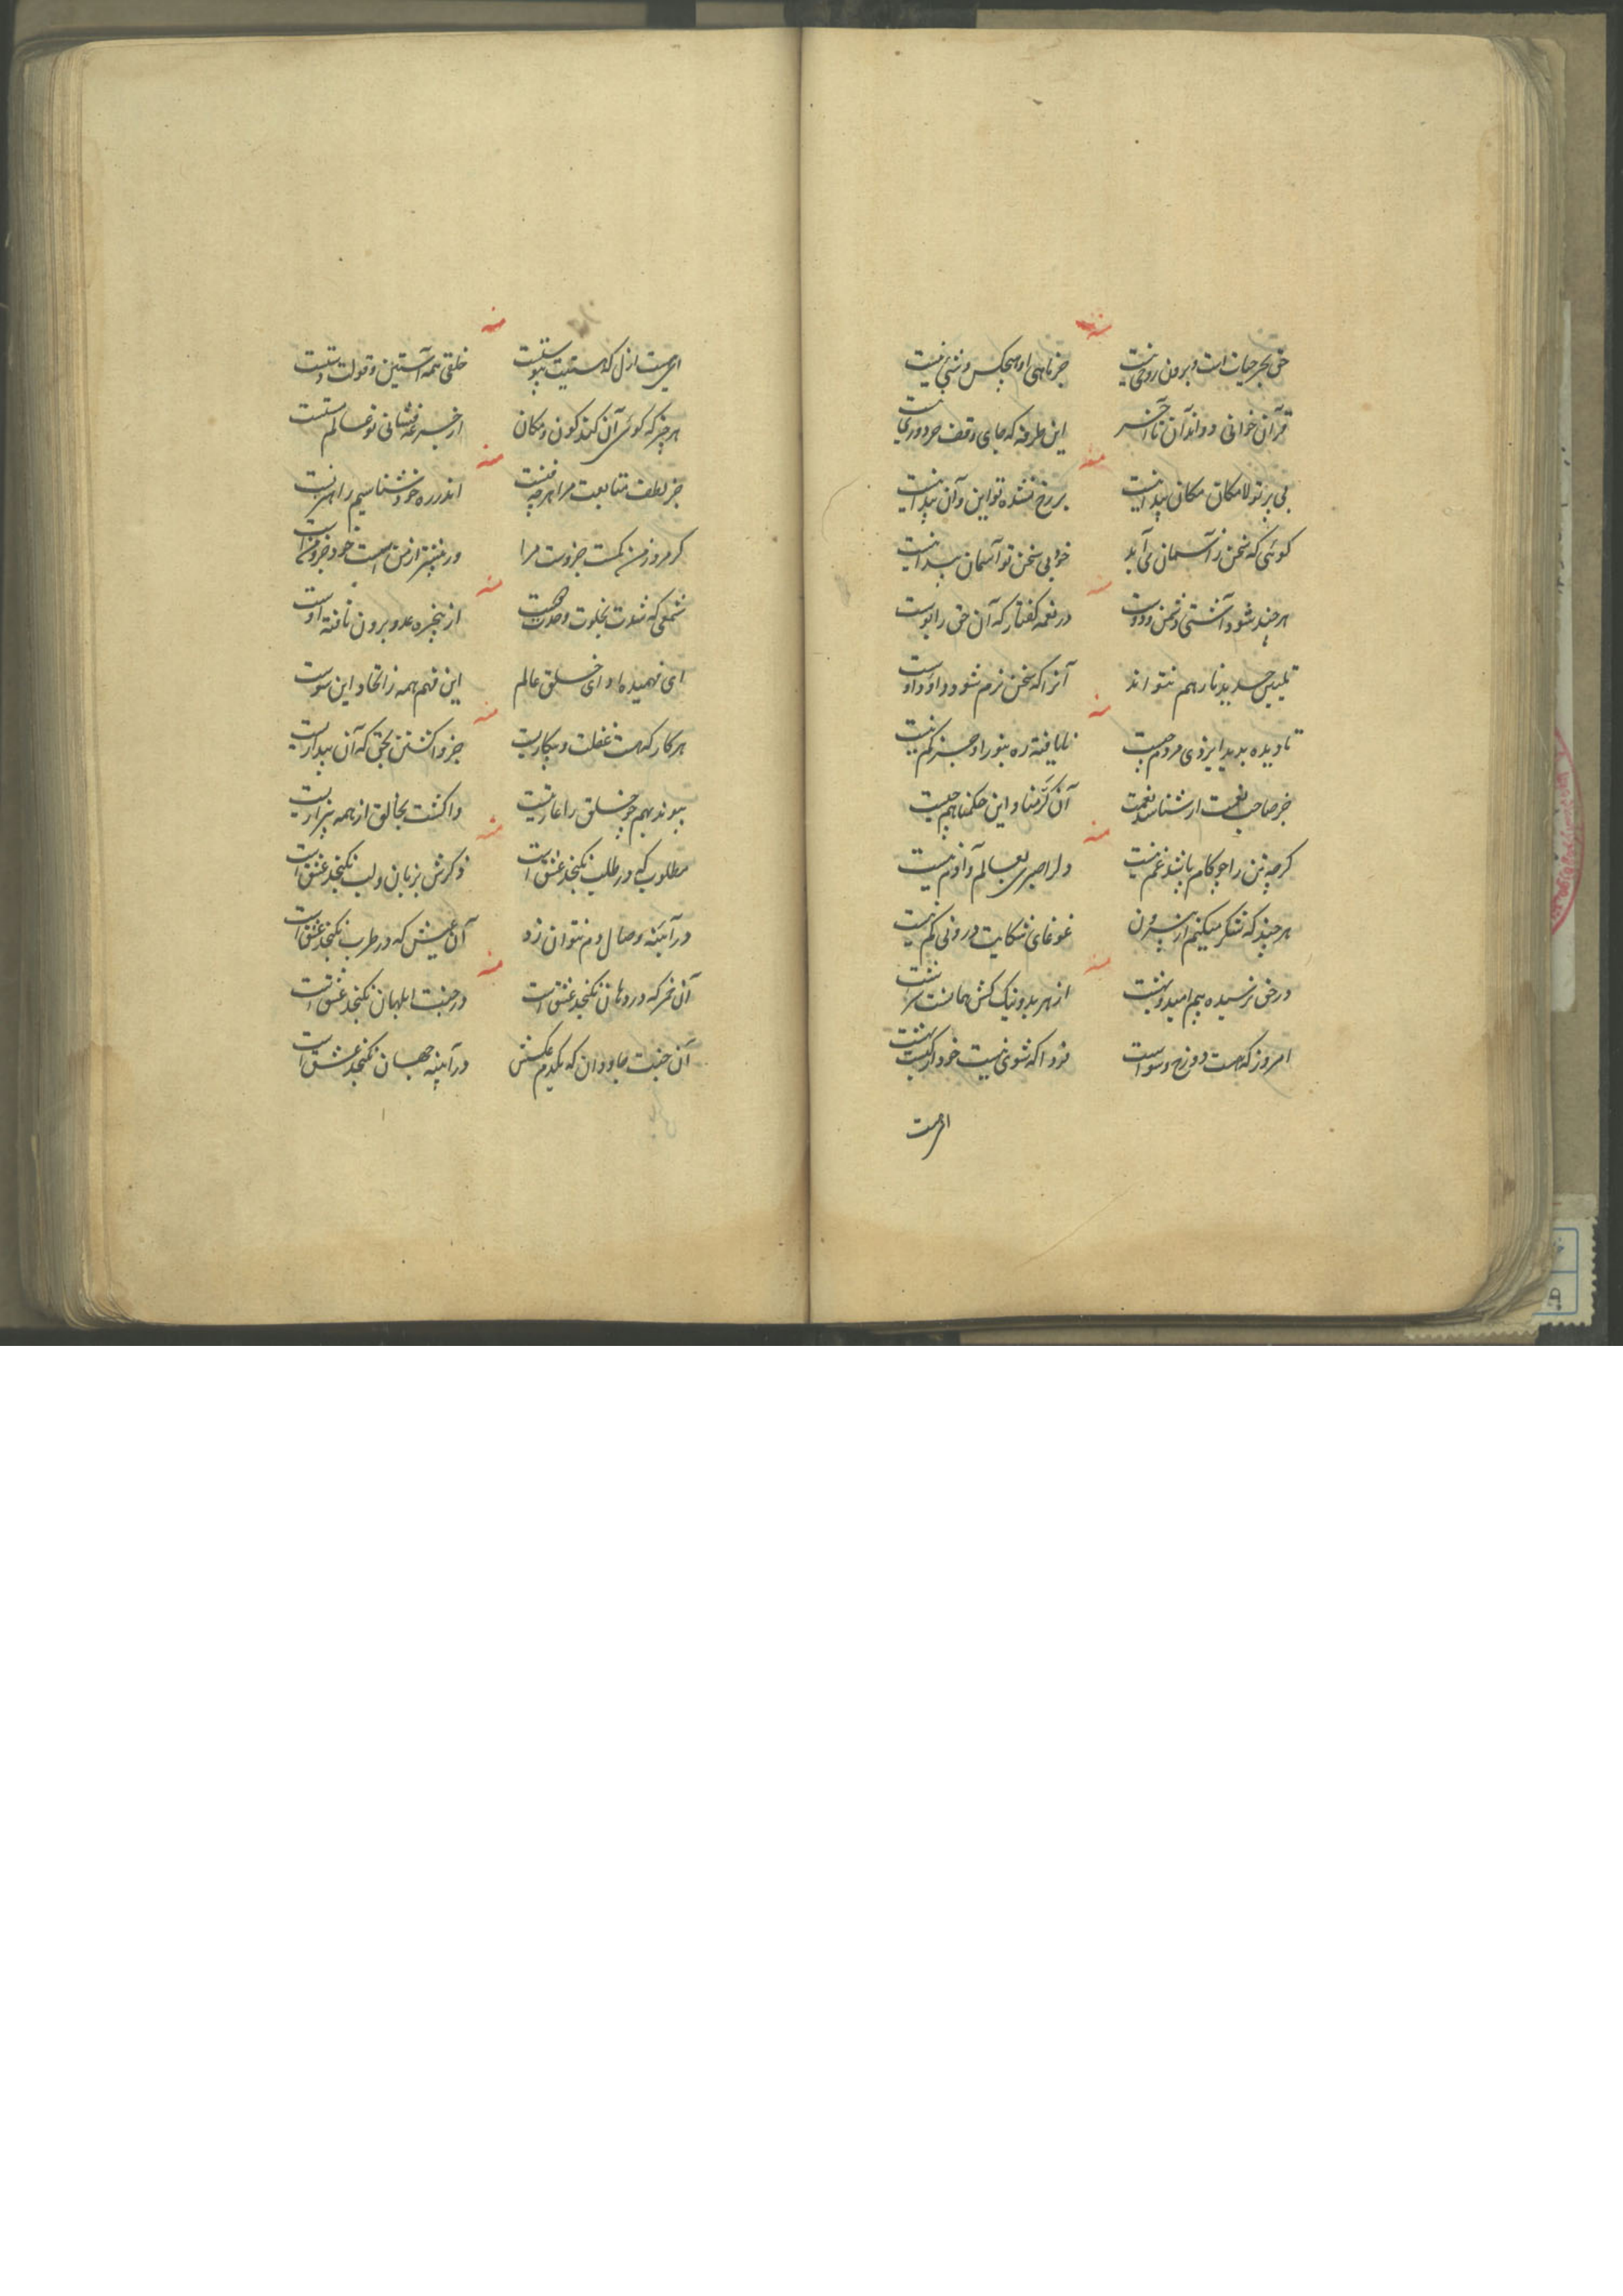 منه
حق بحر حیات است و برون زو حی نیست
جز ماهی او هیچکس و شی نیست
قرآن خوانی و دانی آن تا آخر
این طرفه که جای وقف هر دوری نیست
منه
بی پرتو لامکان مکان پیدا نیست
بر رخ نشده تو این و آن پیدا نیست
گوئی که سخن ز آسمان می آید
خود بی سخن تو آسمان پیدا نیست
منه
هر چند شود آشتی دشمن و دوست
در نغمه گفتار که آن حق را بوست
تلبیس حسد بد نار هم نتواند
آنرا که سخن نرم شود داود اوست
منه
نادیده بدید ایزدی مردم چیست
نایافته ره بنور او جز گم نیست
جز صاحب نعمت ار شناسد نعمت
آن کرمنا و این حکمنا هم چیست
منه
گرچه تن را چو کام باشد غم نیست
دل را صبری بعالم و آدم نیست
هر چند که شکر میکنیم از بیرون
غوغای شکایت درونی کم نیست
منه
در حق نرسیده بیم امید و بهشت
از هر بد و نیک کش همانست سرشت
امروز که هست دوزخ وسواست
فردا که شوی نیست خود آنست بهشت
ای هست
منه
ای هست ازل که هستیت پیوستست
خلقی همه آستین و قولت دستست
هر چیز که گوئی آن کند کون و مکان
از جرعه فشانی تو عالم مستست
منه
جز لطف متابعت مرا هر چه فنیست
اندر ره خود شناسیم راهزنیست
گر مرد ز من کمست جزوست مرا
ور بیشتر از من است خود جزو منست
منه
شمعی که شدت بخلوت وحدت دوست
از پنجره عدد برون تافته اوست
ای فهمیده ادای خلق عالم
این فهم همه ز اتحاد این سوست
منه
هر کار که هست غفلت و بیکاریست
جز واگشتن بحق که آن بیداریست
پیوند بهم چو خلق را عاریتیست
واگشت بخالق از همه بیزاریست
منه
مطلوب که در طلب نگنجد عشق است
ذکرش بزبان و لب نگنجد عشق است
در آینه وصال دم نتوان زد
آن عیش که در طرب نگنجد عشق است
منه
آن می که در دهان نگنجد عشق است
در جنت ابلهان نگنجد عشق است
آن جنت جاودان که یکدم عکسش
در آینه جهان نگنجد عشق است